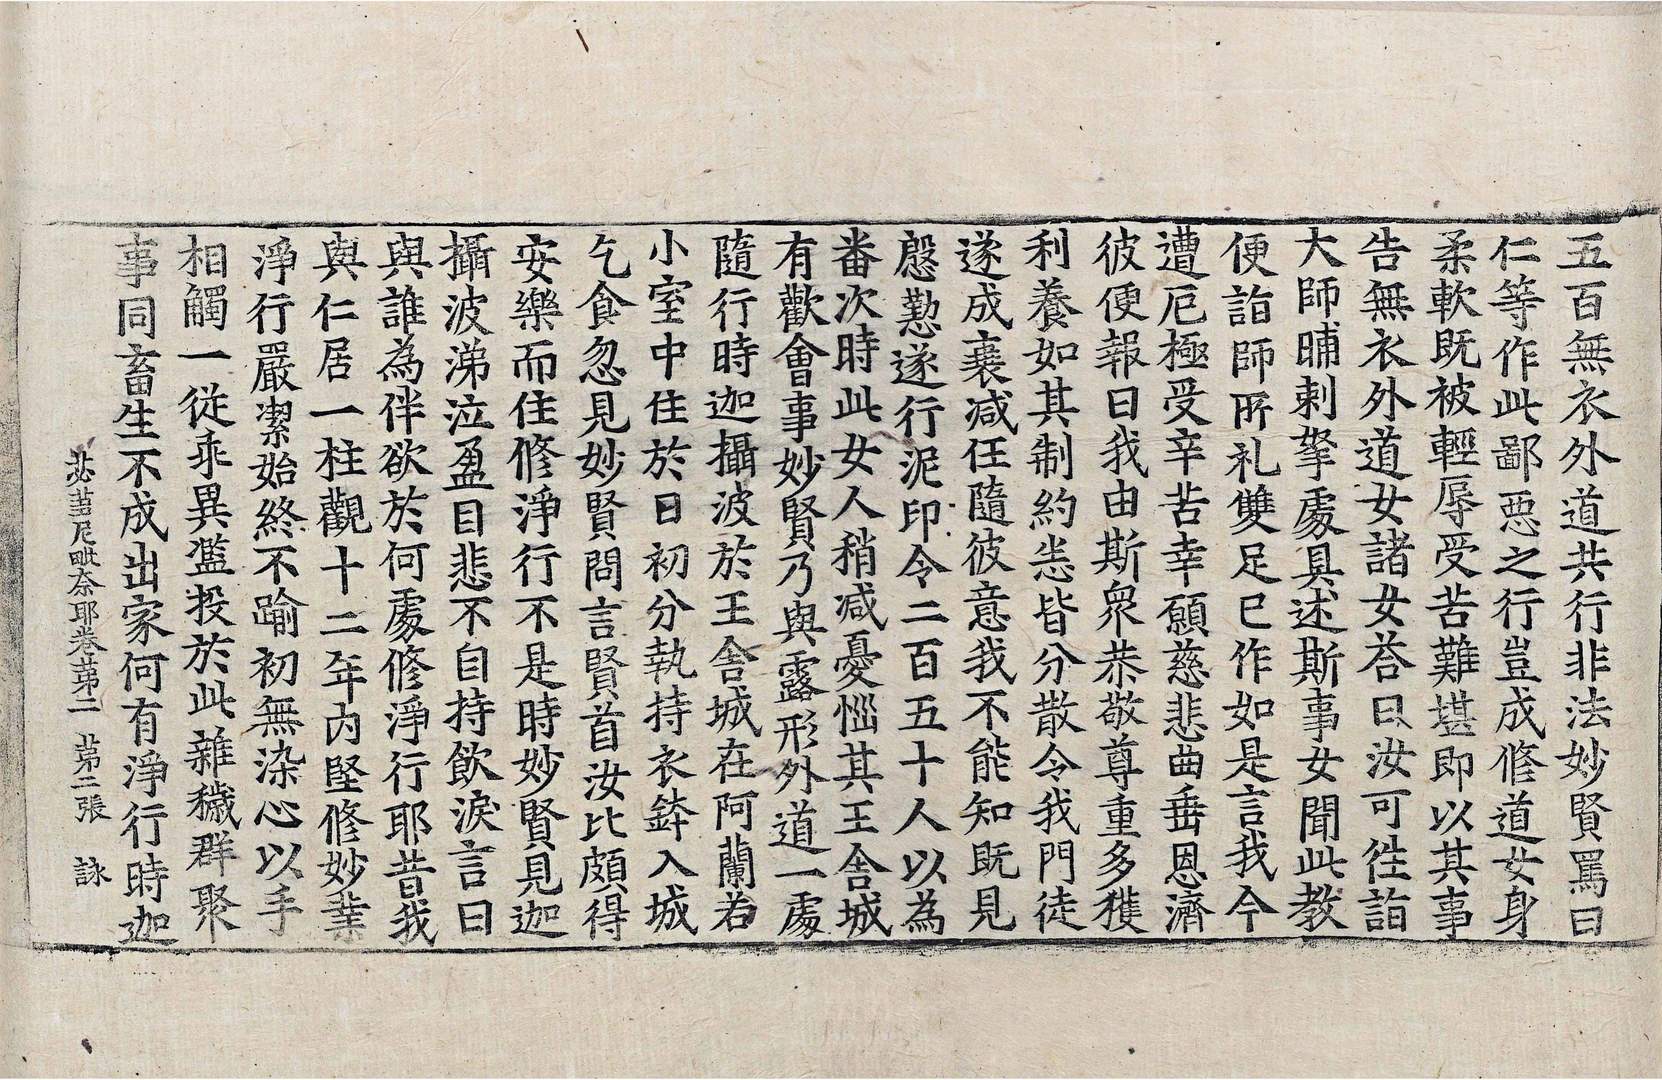 五百無衣外道共行非法妙賢罵曰
仁等作此鄙惡之行豈成修道女身
柔軟既被輕辱受苦難堪即以其事
告無衣外道女諸女荅曰汝可往詣
大師晡剌拏處具述斯事女聞此教
便詣師所礼雙足已作如是言我今
遭厄極受辛苦幸願慈悲曲垂恩濟
彼便報曰我由斯衆恭敬尊重多獲
利養如其制約恙皆分散令我門徒
遂成衰減任隨彼意我不能知既見
慇懃遂行泥印令二百五十人以為
番次時此女人稍减憂惱其王舍城
有歡會事妙賢乃與露形外道一處
隨行時迦攝波於王舍城在阿蘭若
小室中住於日初分執持衣鉢入城
乞食忽見妙賢問言賢首汝比頗得
安樂而住修淨行不是時妙賢見迦
攝波涕泣盈目悲不自持飲淚言曰
與誰為伴欲於何處修淨行耶昔我
與仁居一柱觀十二年內堅修妙業
淨行嚴潔始終不踰初無染心以手
相觸一從乖異濫投於此雜穢群聚
事同畜生不成出家何有淨行時迦
苾蒭尼毗奈耶卷苐二 苐二張 詠